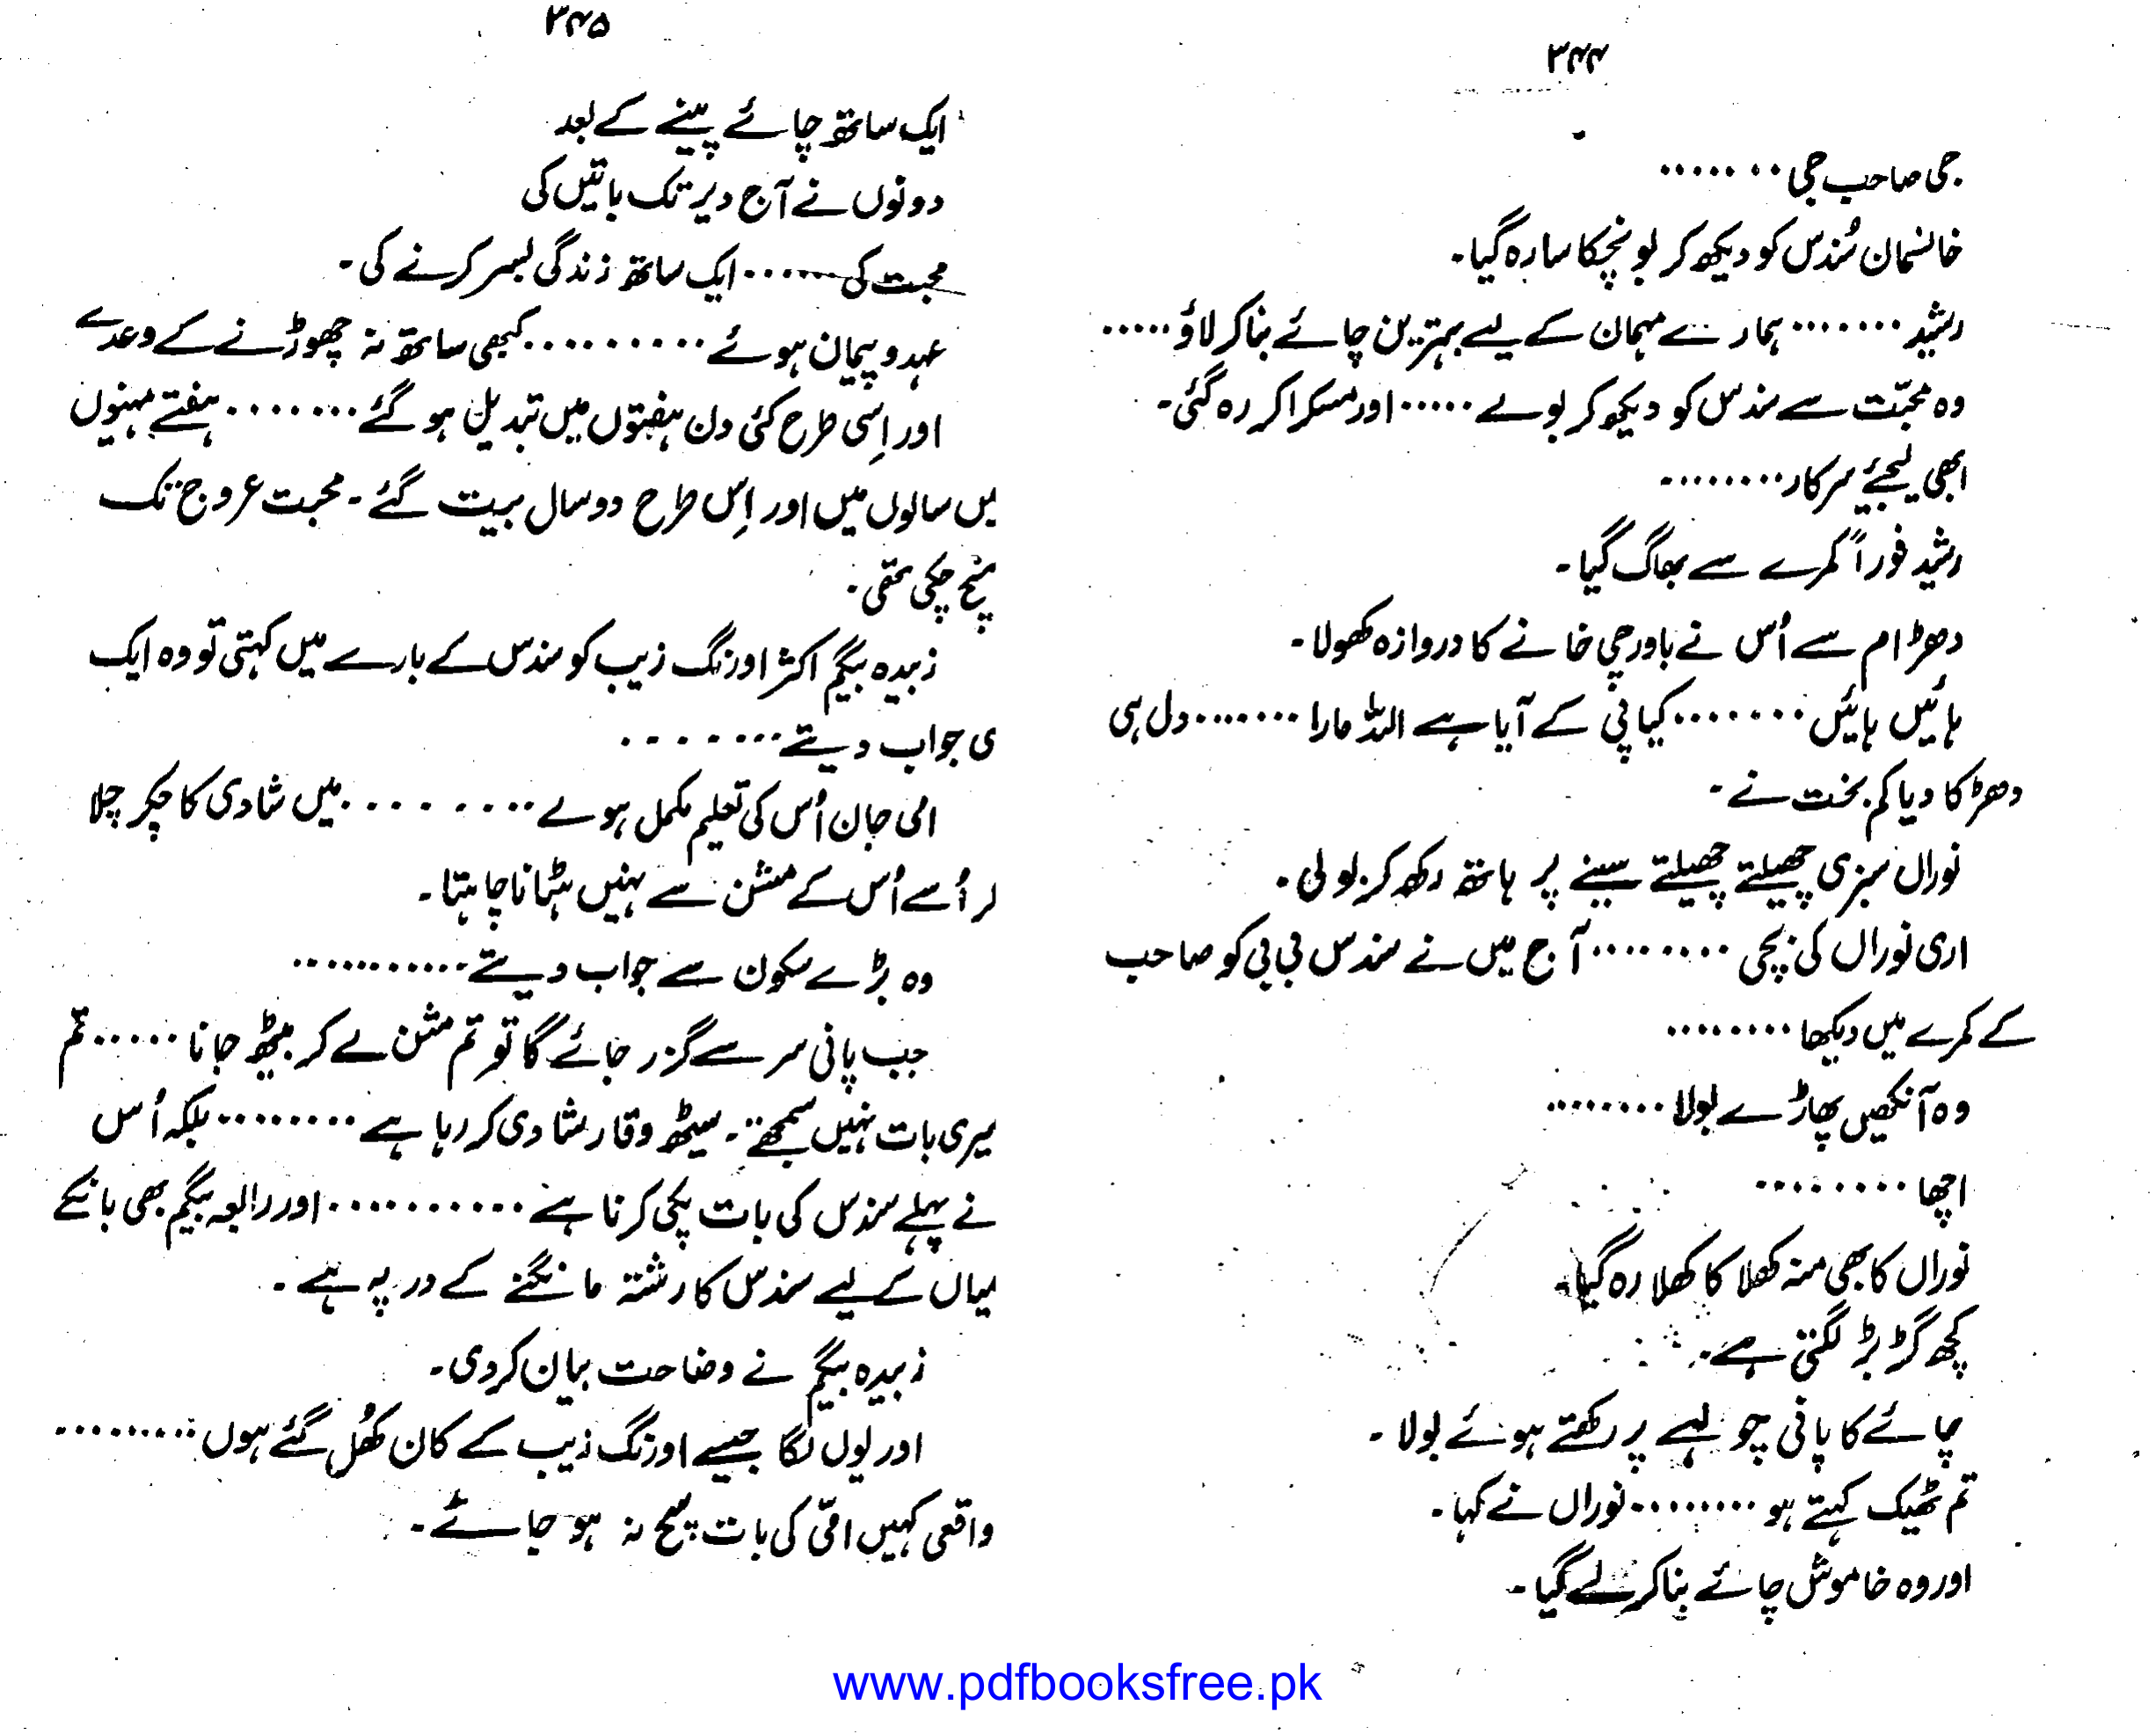 ۳۴۴
جی صاحب جی .......
خانسمان سُندس کو دیکھ کر بونچکا سا رہ گیا۔
رشید ....... ہمارے مہمان کے لیے بہترین چائے بنا کر لاؤ .....
وہ محبّت سے سندس کو دیکھ کر بولے ..... اور مسکرا کر رہ گئی۔
ابھی لیجئے سرکار ........
رشید فوراً کمرے سے بھاگ گیا۔
دھڑام سے اُس نے باورچی خانے کا دروازہ کھولا۔
ہائیں ہائیں ....... کیا پی کے آیا ہے اللہ مارا ....... دل ہی
دھڑکا دیا کم بخت نے۔
نوراں سبزی چھیلتے چھیلتے سینے پر ہاتھ رکھ کر بولی۔
اری نوراں کی بچی ........ آج میں نے سندس بی بی کو صاحب
کے کمرے میں دیکھا ........
وہ آنکھیں پھاڑے بولا ........
اچھا ........
نوراں کا بھی منہ کھلا کا کھلا رہ گیا۔
کچھ گڑ بڑ لگتی ہے۔
چائے کا پانی چولہے پر رکھتے ہوئے بولا۔
تم ٹھیک کہتے ہو ........ نوراں نے کہا۔
اور وہ خاموش چائے بنا کر لے گیا۔
۳۴۵
ایک ساتھ چائے پینے کے بعد
دونوں نے آج دیر تک باتیں کی
محبت کی ...... ایک ساتھ زندگی بسر کرنے کی۔
عہد و پیمان ہوئے ......... کبھی ساتھ نہ چھوڑنے کے وعدے
اور اِسی طرح کئی دن ہفتوں میں تبدیل ہو گئے ....... ہفتے مہنیوں
یں سالوں میں اور اِس طرح دو سال بیت گئے۔ محبت عروج تک
پہنچ چکی تھی۔
زبیدہ بیگم اکثر اورنگ زیب کو سندس کے بارے میں کہتی تو وہ ایک
ی جواب دیتے .......
امی جان اُس کی تعلیم مکمل ہولے ......... میں شادی کا چکر چلا
ر اُسے اُس کے مشن سے نہیں ہٹانا چاہتا۔
وہ بڑے سکون سے جواب دیتے ...........
جب پانی سر سے گزر جائے گا تو تم مشن لے کر بیٹھ جانا ..... تم
یری بات نہیں سمجھتے۔ سیٹھ وقار شادی کر رہا ہے ........ بلکہ اُس
نے پہلے سندس کی بات پکی کرنا ہے .......... اور رابعہ بیگم بھی بانکے
یاں کے لیے سندس کا رشتہ مانگنے کے در پہ ہے۔
زبیدہ بیگم نے وضاحت بیان کر دی۔
اور یوں لگا جیسے اورنگ زیب کے کان کھُل گئے ہوں .........
واقعی کہیں امّی کی بات سچ نہ ہو جائے۔
www.pdfbooksfree.pk